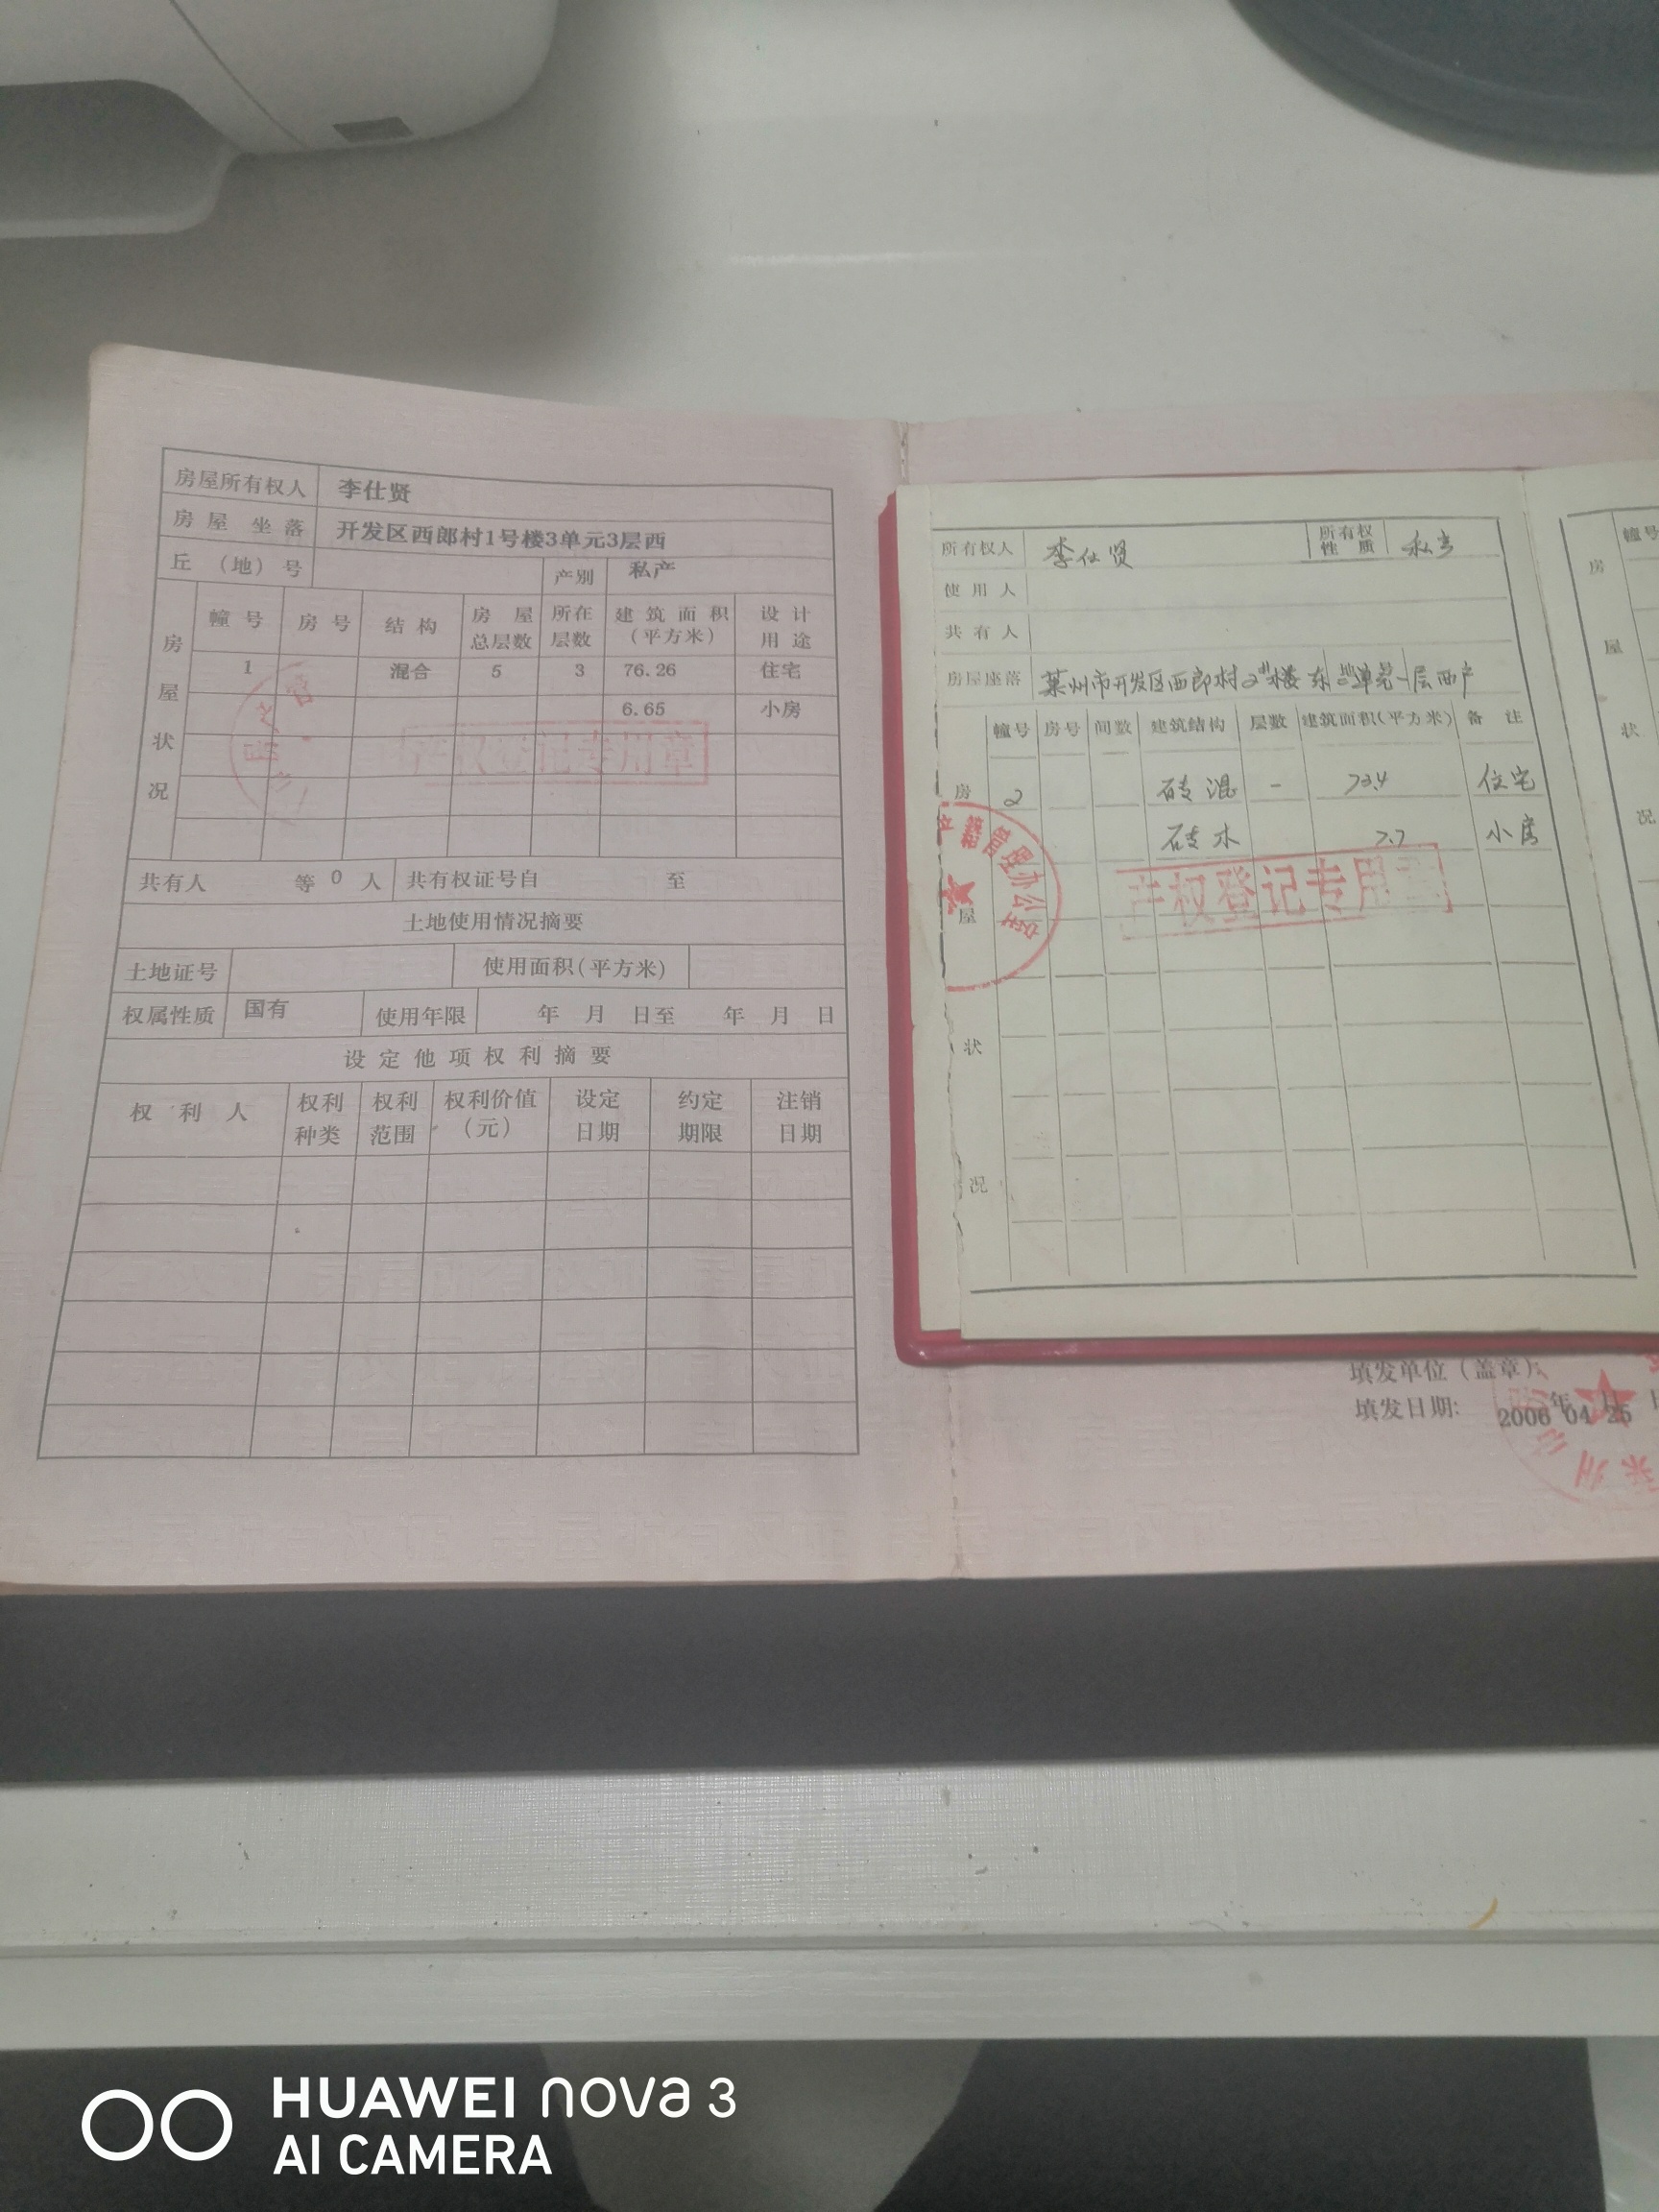 房屋所有权人 李仕贤
房屋坐落 开发区西郎村1号楼3单元3层西
丘（地）号 产别 私产
房屋状况
幢号 房号 结构 房屋总层数 所在层数 建筑面积（平方米） 设计用途
1 混合 5 3 76.26 住宅
6.65 小房
产权登记专用章
共有人 等0人 共有权证号自 至
土地使用情况摘要
土地证号 使用面积(平方米)
权属性质 国有 使用年限 年 月 日至 年 月 日
设定他项权利摘要
权利人 权利种类 权利范围 权利价值（元） 设定日期 约定期限 注销日期
所有权人 李仕贤 所有权性质 私产
使用人
共有人
房屋座落 莱州市开发区西郎村2#楼东 单元一层西户
房屋状况
幢号 房号 间数 建筑结构 层数 建筑面积(平方米) 备注
2 砖混 一 73.4 住宅
砖木 7.7 小房
产籍管理办公室
产权登记专用章
幢号
房屋状况
填发单位（盖章）：
填发日期： 2006年04月25
HUAWEI nova 3
AI CAMERA